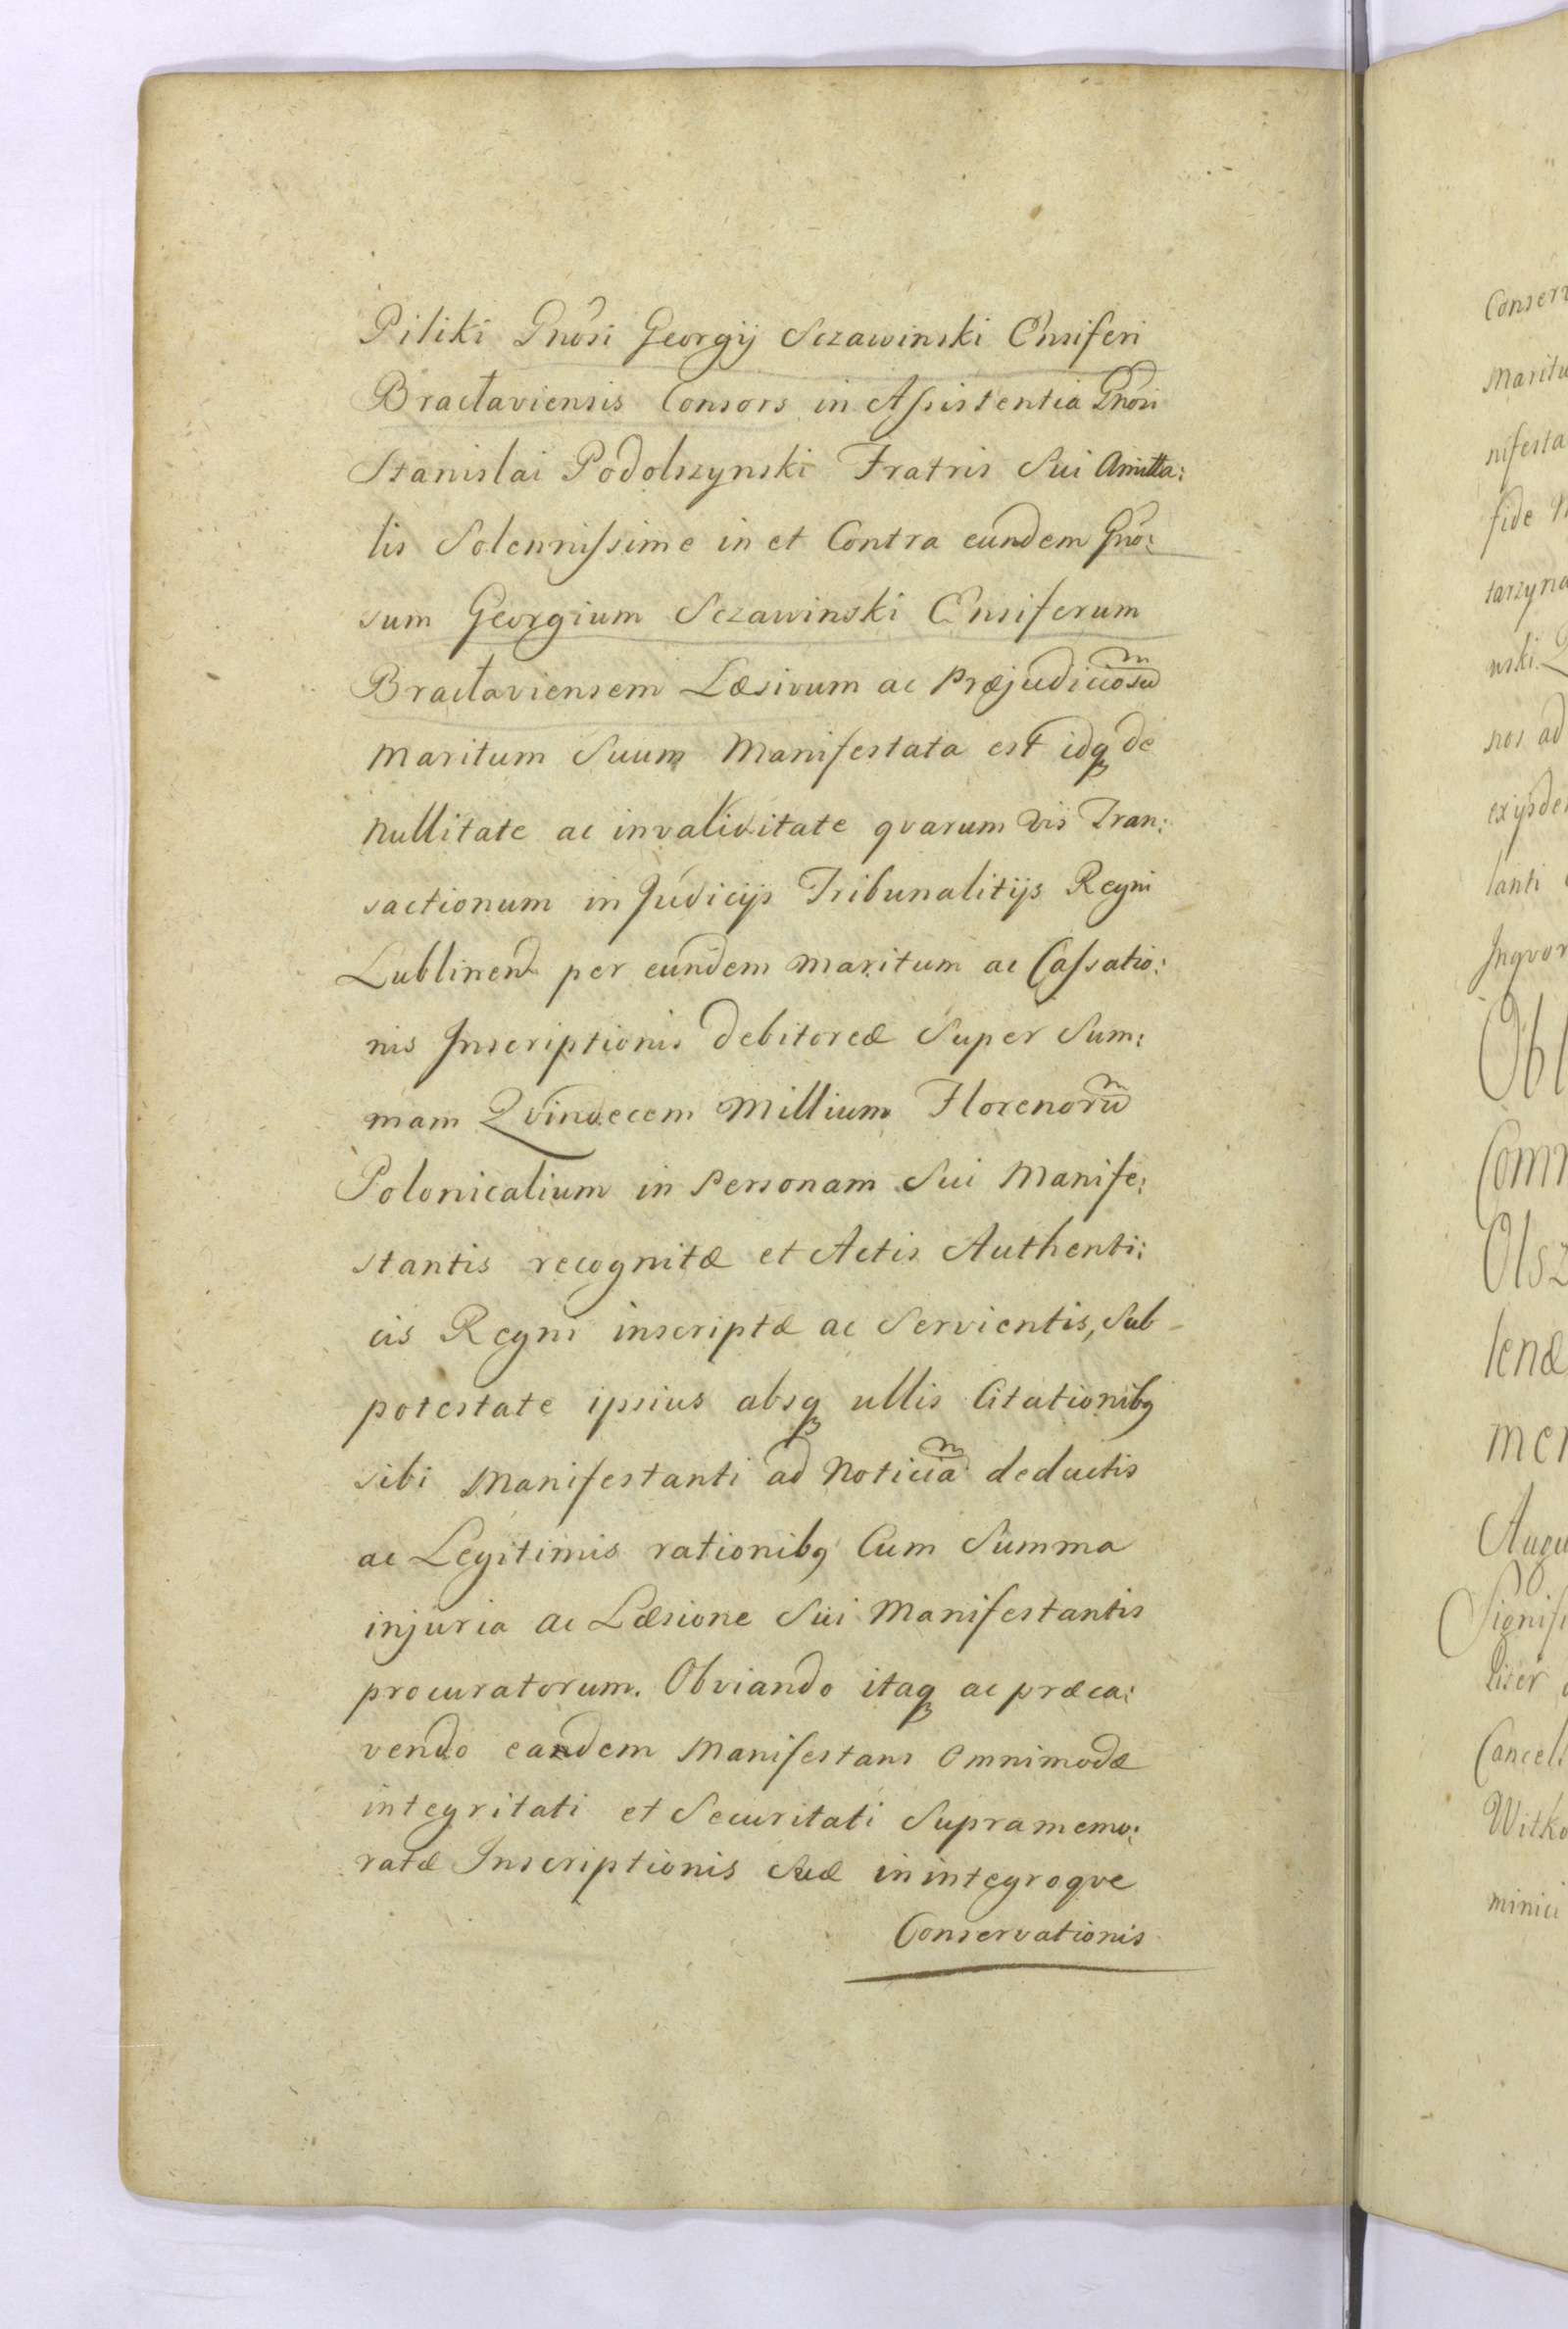 Piliki Gnosi Georgij Sczawinski Ensiferi
Braclaviensis Consors in Assistentia Gnosi
Stanislai Podolszynski Fratris Sui Amitta:
lis Solennissime in et Contra eundem Gno:
sum Georgium Sczawinski Ensiferum
Braclaviensem Læsivum ac Præjudiciosu᷆
Maritum Suum Manifestata est idq de
Nullitate ac invaliditate qvarum vis Tran:
sactionum in Judicijs Tribunalitijs Regni
Lublinen per eundem Maritum ac Cassatio:
nis Inscriptionis debitoreæ Super Sum:
mam Qvindecem Millium Florenoru᷆
Polonicalium in Personam Sui Manife:
stantis recognitæ et Actis Authenti:
cis Regni inscriptæ ac Servientis, Sub-
potestate ipsius absq ullis Citationibq
sibi Manifestanti ad Noticia᷆ deductis
ac Legitimis rationibq Cum Summa
injuria ac Læsione Sui Manifestantis
procuratorum. Obviando itaq ac præca:
vendo eandem Manifestans Omnimodæ
integritati et Securitati Supramemo:
ratæ Inscriptionis Suæ in integroqve
Conservationis
Conserv
Maritu
nifesta
fide
tarzyna
nski
nos ad
exijsde
lanti
Inqvor
Obl
Com
Olsz
lenæ
men
Augu
Signifi
liter
Cancel
Witko
minici